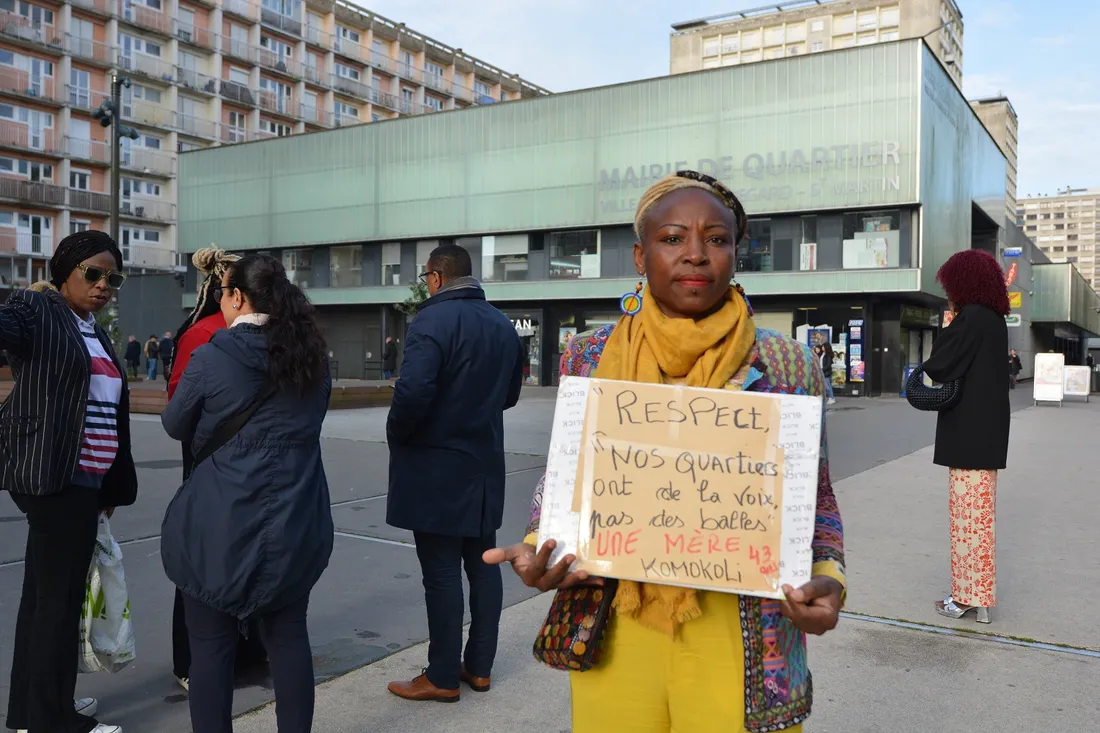 MAIRIE DE QUARTIER
"RESPECT,
"NOS QUARTIERS
ont de la voix,
pas des balles"
UNE MÈRE 43 ans
KOMOKOLi